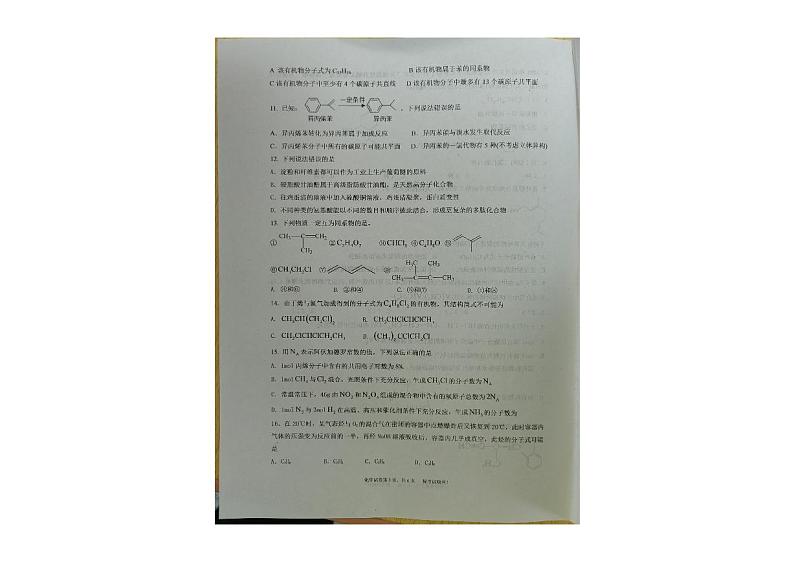 A 该有机物分子式为C₁₃H₁₄ B 该有机物属于苯的同系物
C 该有机物分子中至少有 4 个碳原子共直线 D 该有机物分子中最多有 13 个碳原子共平面
11. 已知: 一定条件 ,下列说法错误的是
异丙烯苯 异丙苯
A. 异丙烯苯转化为异丙苯属于加成反应 B. 异丙苯能与溴水发生取代反应
C. 异丙烯苯分子中所有的碳原子可能共平面 D. 异丙苯的一氯代物有 5 种(不考虑立体异构)
12. 下列说法错误的是
A. 淀粉和纤维素都可以作为工业上生产葡萄糖的原料
B. 硬脂酸甘油酯属于高级脂肪酸甘油酯,是天然高分子化合物
C. 往鸡蛋清的溶液中加入硫酸铜溶液,鸡蛋清凝聚,蛋白质变性
D. 不同种类的氨基酸能以不同的数目和顺序彼此结合,形成更复杂的多肽化合物
13. 下列物质一定互为同系物的是。
① CH₃ CH₂ CH₃ ② ③CHCl₃ ④C₄H₈O ⑤
⑥CH₃CH₂Cl ⑦ ⑧ H₃C CH₃ H₃C CH₃
A. ④和⑥ B. ②和④ C. ⑤和⑦ D. ①和⑧
14. 由丁烯与氯气加成得到的分子式为C₄H₈Cl₂的有机物,其结构简式不可能为
A. CH₃CH(CH₂Cl)₂ B. CH₃CHClCHClCH₃
C. CH₂ClCHClCH₂CH₃ D. (CH₃)₂CClCH₂Cl
15. 用 N_A 表示阿伏加德罗常数的值,下列说法正确的是
A. 1mol 丙烯分子中含有的共用电子对数为 8N_A
B. 1mol CH₄ 与 Cl₂ 混合,光照条件下充分反应,生成 CH₃Cl 的分子数为 N_A
C. 常温常压下,46g 由 NO₂ 和 N₂O₄ 组成的混合物中含有的氧原子总数为 2N_A
D. 1mol N₂ 与 3mol H₂ 在高温、高压和催化剂条件下充分反应,生成 NH₃ 的分子数为
16. 在 20℃时,某气态烃与 O₂ 的混合气在密闭的容器中点燃爆炸后又恢复到 20℃,此时容器内
气体的压强变为反应前的一半,再经 NaOH 溶液吸收后,容器内几乎成真空,此烃的分子式可能
是
A. B. C. D.
化学试卷第 3 页,共 6 页